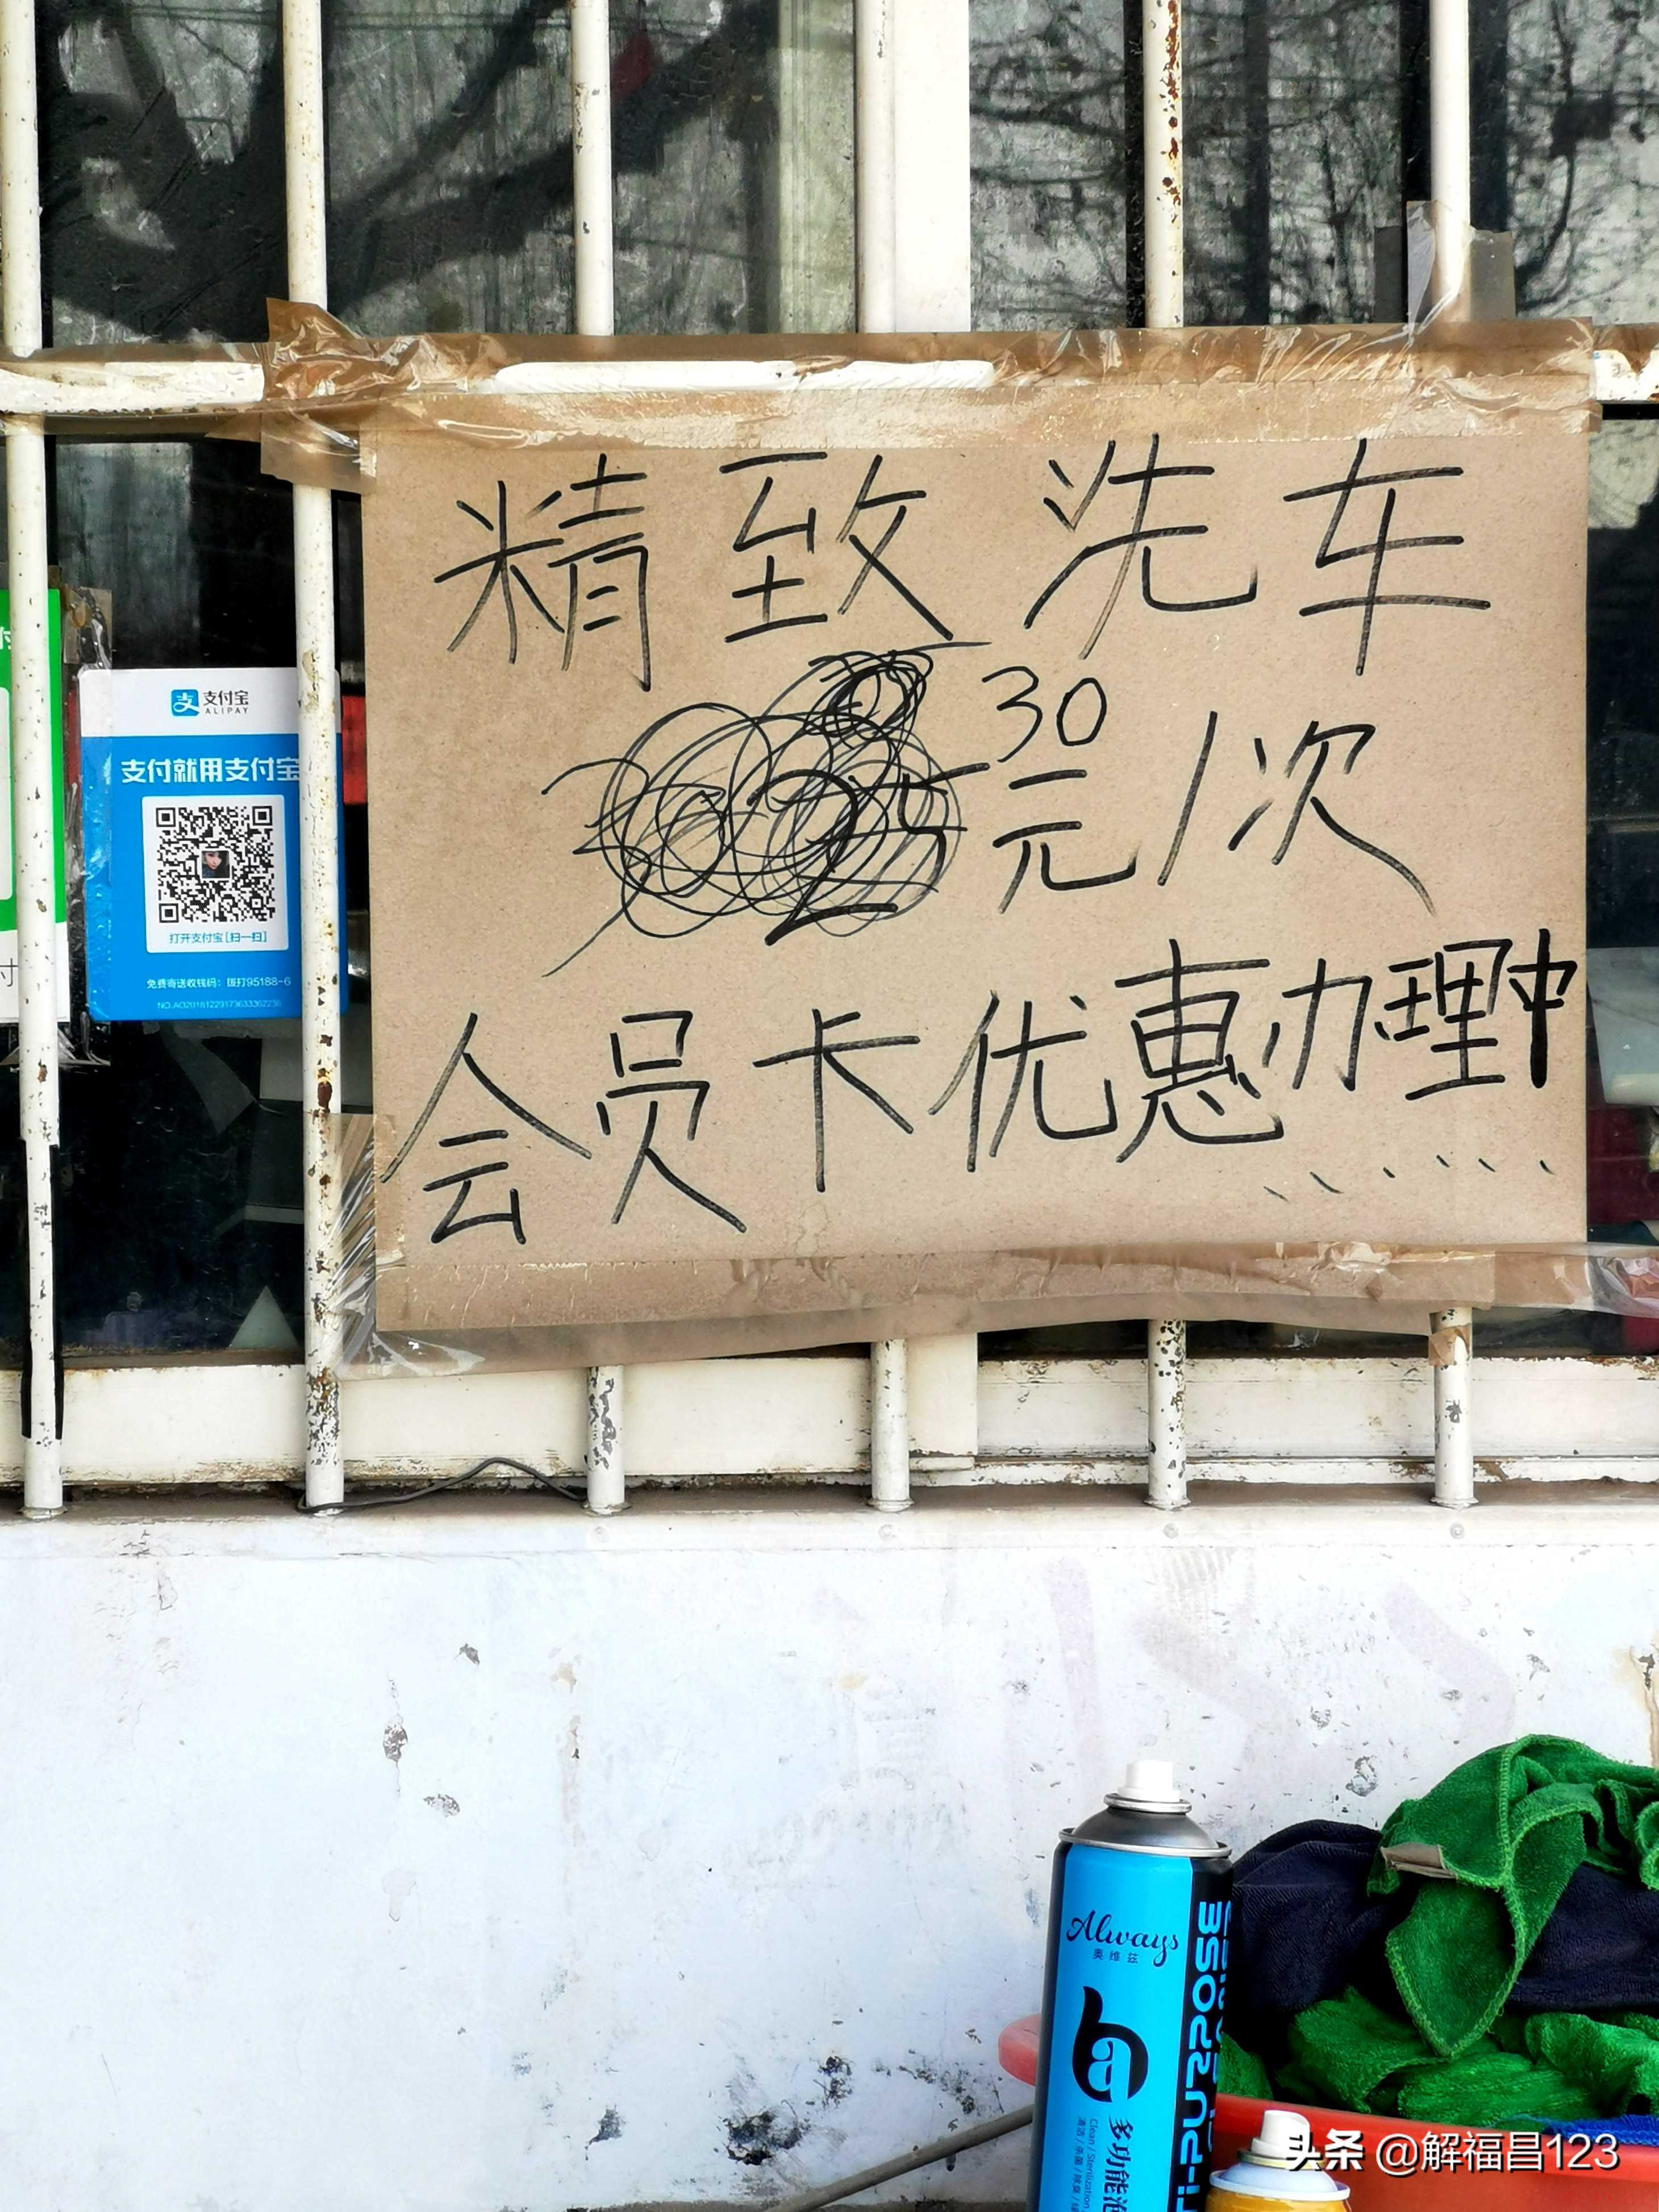 精致洗车
30
25元/次
会员卡优惠办理中
......
支付宝
ALIPAY
支付就用支付宝
打开支付宝[扫一扫]
免费寄送收钱码：拨打95188-6
付
Always
奥维兹
多功能泡
Clean / Sterilization
TI-PURPOSE
头条 @解福昌123